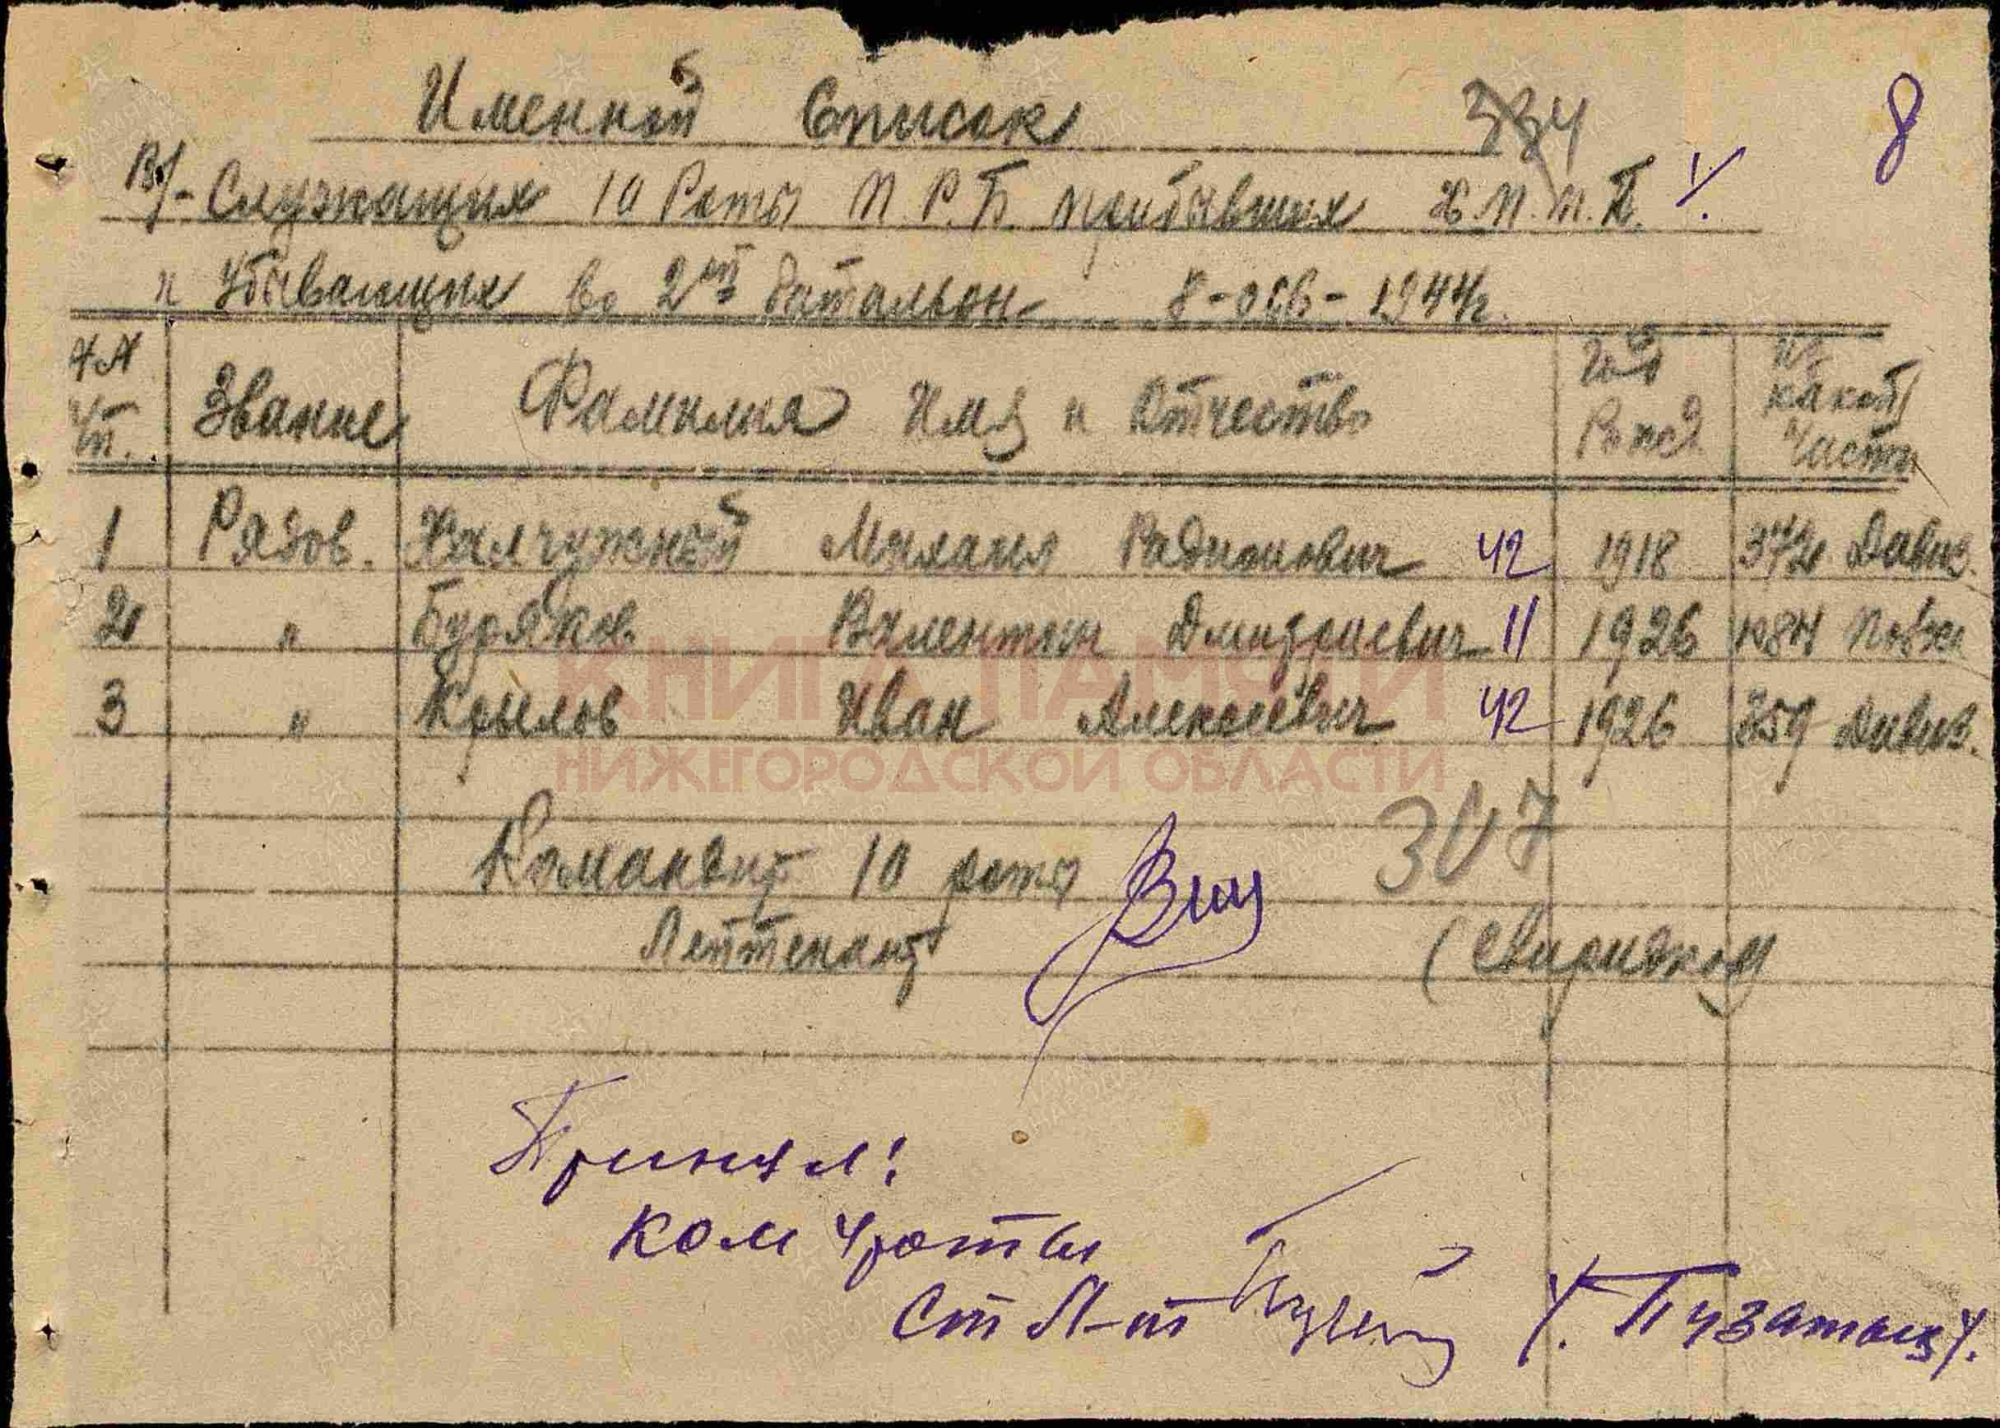 Именной Список 334 8
В/-Служащих 10 Роты П.Р.Б. прибывших
и Убывающих во 2ой батальон 8-окв-1944г.
№№ Звание Фамилия Имя и Отчество год из какой
п/п. Рожд части
1 Рядов. Халчужный Михаил Радионович 42 1918 372 Дивиз.
2 " Буряков Валентин Дмитриевич 11 1926 1084
3 " Крылов Иван Алексеевич 42 1926 359 Дивиз.
КНИГА ПАМЯТИ
НИЖЕГОРОДСКОЙ ОБЛАСТИ
307
Командир 10 роты
Лейтенант
Принял:
ком 4роты
Ст Л-т